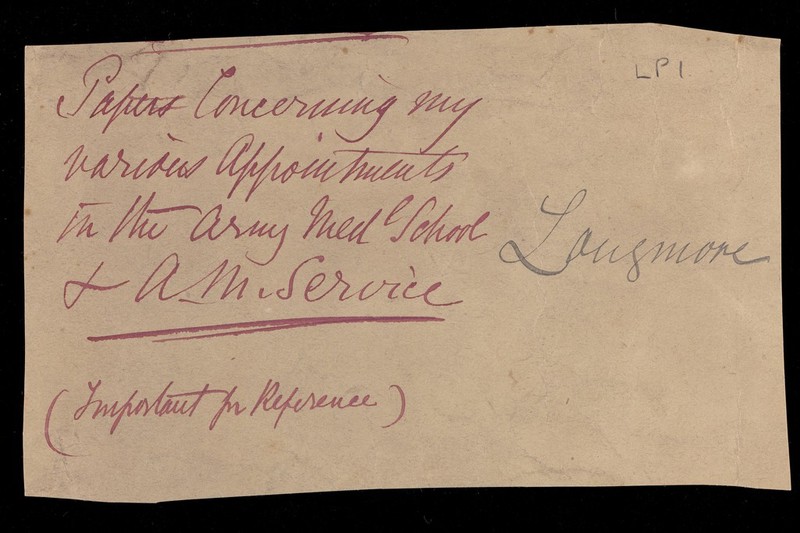 LP1
Papers Concerning my
various Appointments
in the Army Medl School
& A.M. Service
Longmore
(Important for Reference)